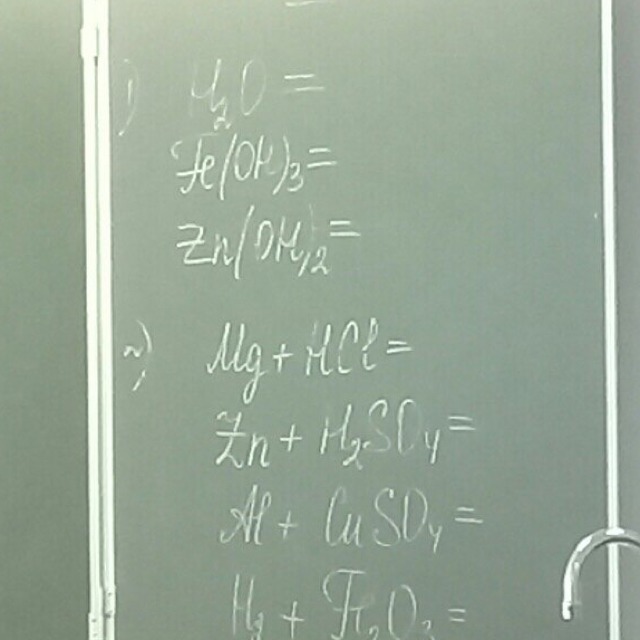 1) H₂O =
Fe(OH)₃ =
Zn(OH)₂ =
2) Mg + HCl =
Zn + H₂SO₄ =
Al + CuSO₄ =
H₂ + Fe₂O₃ =